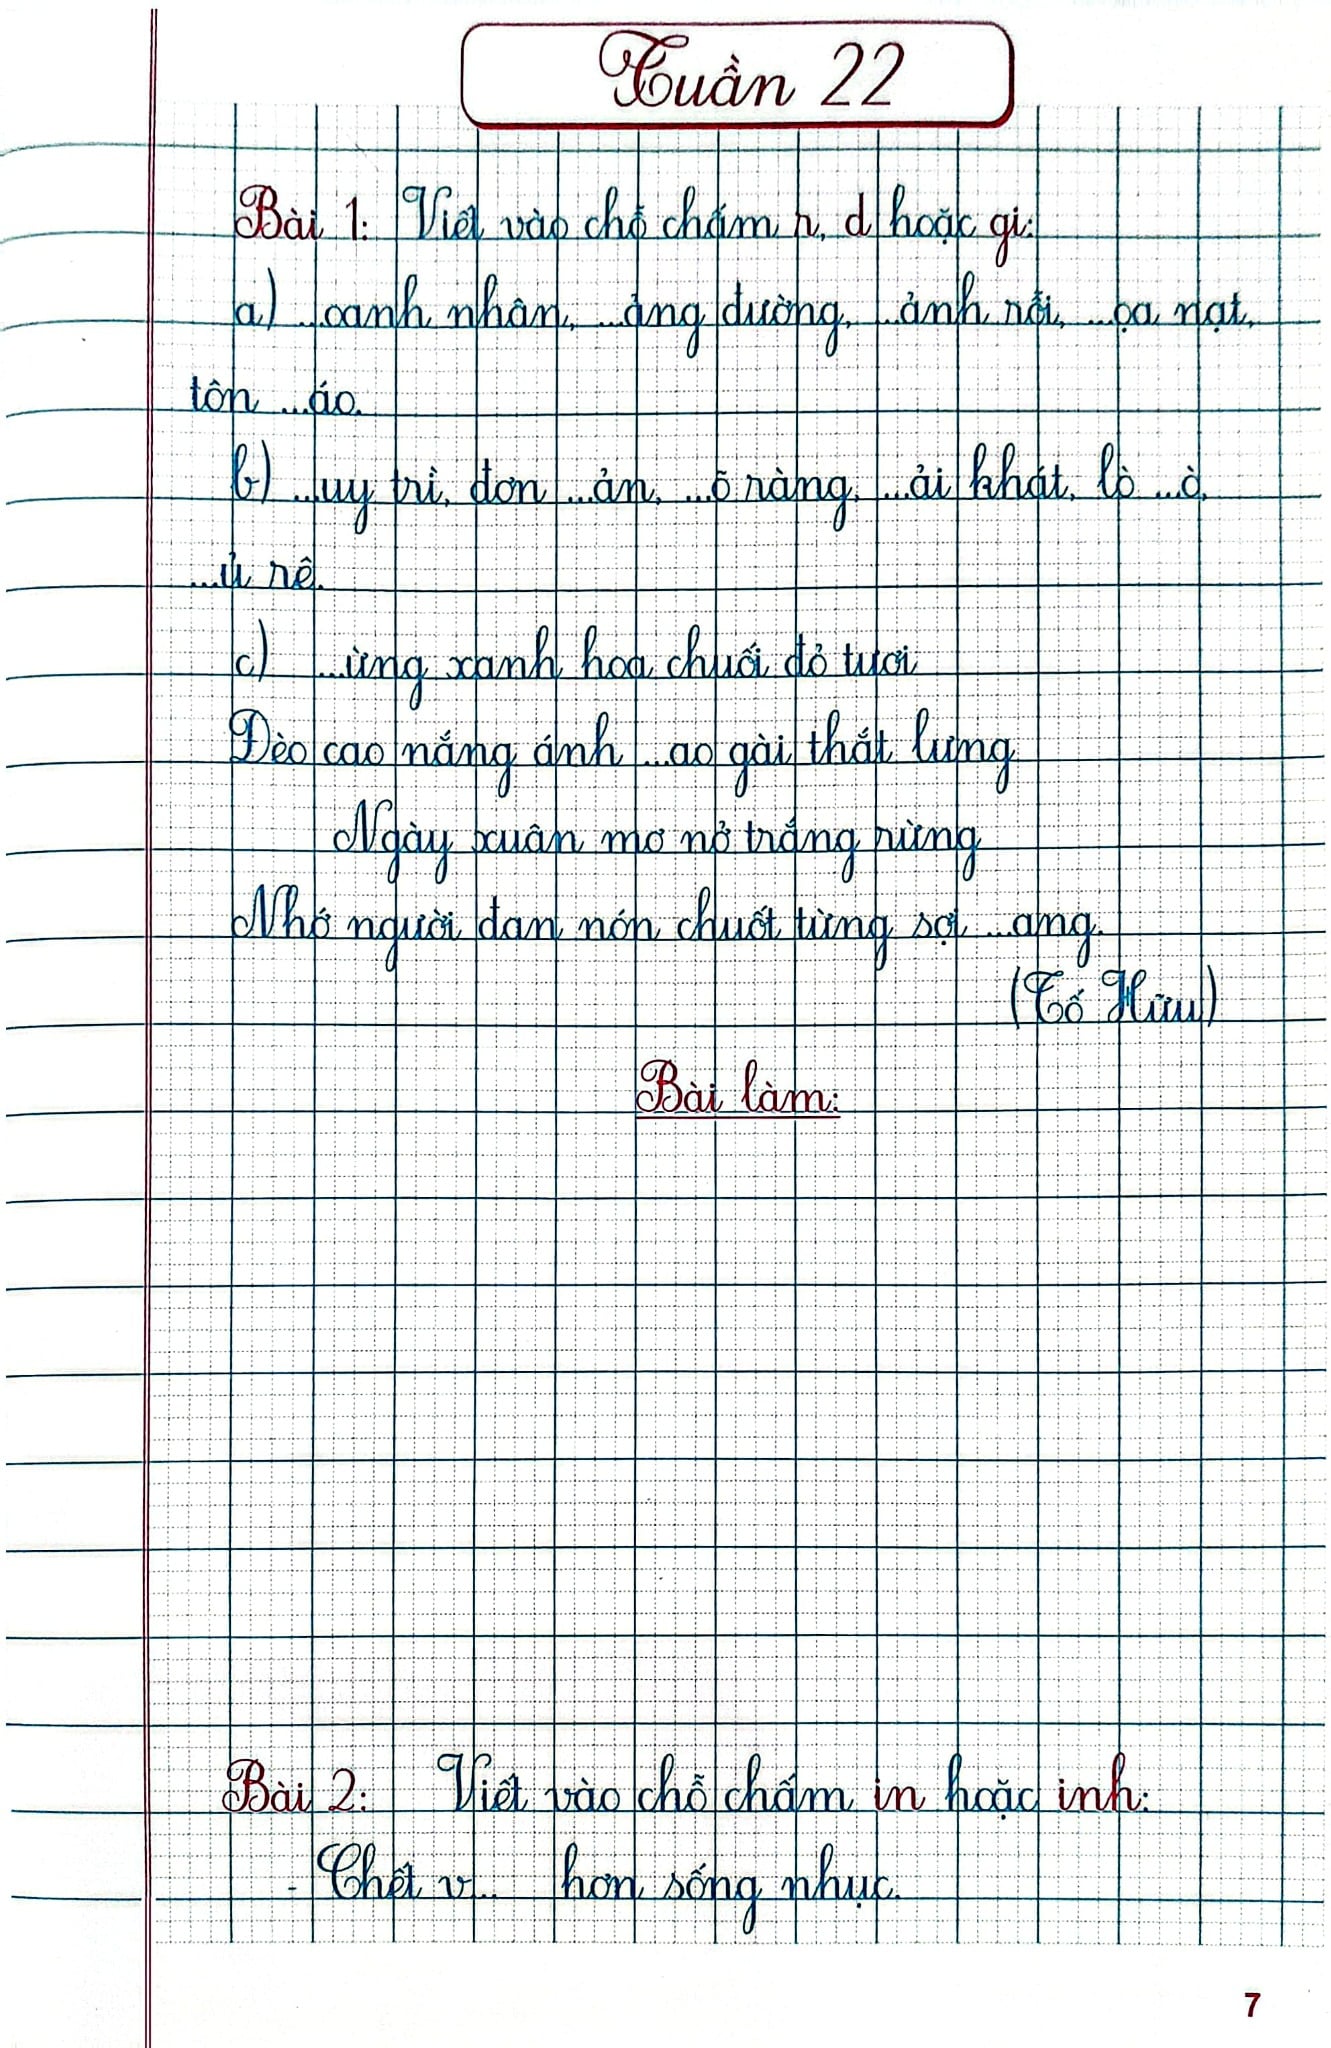 Tuần 22
Bài 1: Viết vào chỗ chấm r, d hoặc gi:
a) ...oanh nhân, ...ảng đường, ...ảnh rỗi, ...ọa nạt,
tôn ...áo.
b) ...uy trì, đơn ...ản, ...õ ràng, ...ải khát, lò ...ò,
...ủ rê.
c) ...ừng xanh hoa chuối đỏ tươi
Đèo cao nắng ánh ...ao gài thắt lưng
Ngày xuân mơ nở trắng rừng
Nhớ người đan nón chuốt từng sợi ...ang.
(Tố Hữu)
Bài làm:
Bài 2: Viết vào chỗ chấm in hoặc inh:
- Chết v... hơn sống nhục.
7